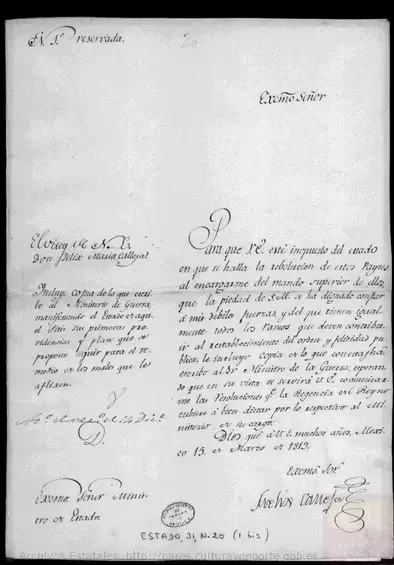 N. 1º reservada.
Exmo Señor
El virrey de N. E.
don Felix Maria Calleja
Incluye copia de lo que escribe
al Ministerio de Guerra
manifestando el Estado en aquel
Pais sus primeras providencias
y plan que se
propone seguir para el remedio
en los males que le
afligen.
Para que V.E. esté impuesto del estado
en que se halla la rebolucion de estos Paynes
al encargarme del mando superior de ellos
que la piedad de S.M. se ha dignado confiar
á mis débiles fuerzas, y del que tienen igualmente
todos los ramos que deven contribuir
al restablecimiento del orden y felicidad publica,
le incluyo copia de lo que con esta fha
escribo al Sr Ministro de la Guerra, esperando
que en su vista se servirá V.E. comunicarme
las resoluciones qe. la Regencia del Reyno
tubiere á bien dictar por lo respectivo al Ministerio
de su cargo.
Dios gue á V.E. muchos años. Mexico
15 de Marzo de 1813.
Exmo Sor
Felix Calleja
Exmo Señor Ministro
de Estado.
ESTADO, 31, N.20 (1 bis)
Archivos Estatales, http://pares.culturaydeporte.gob.es